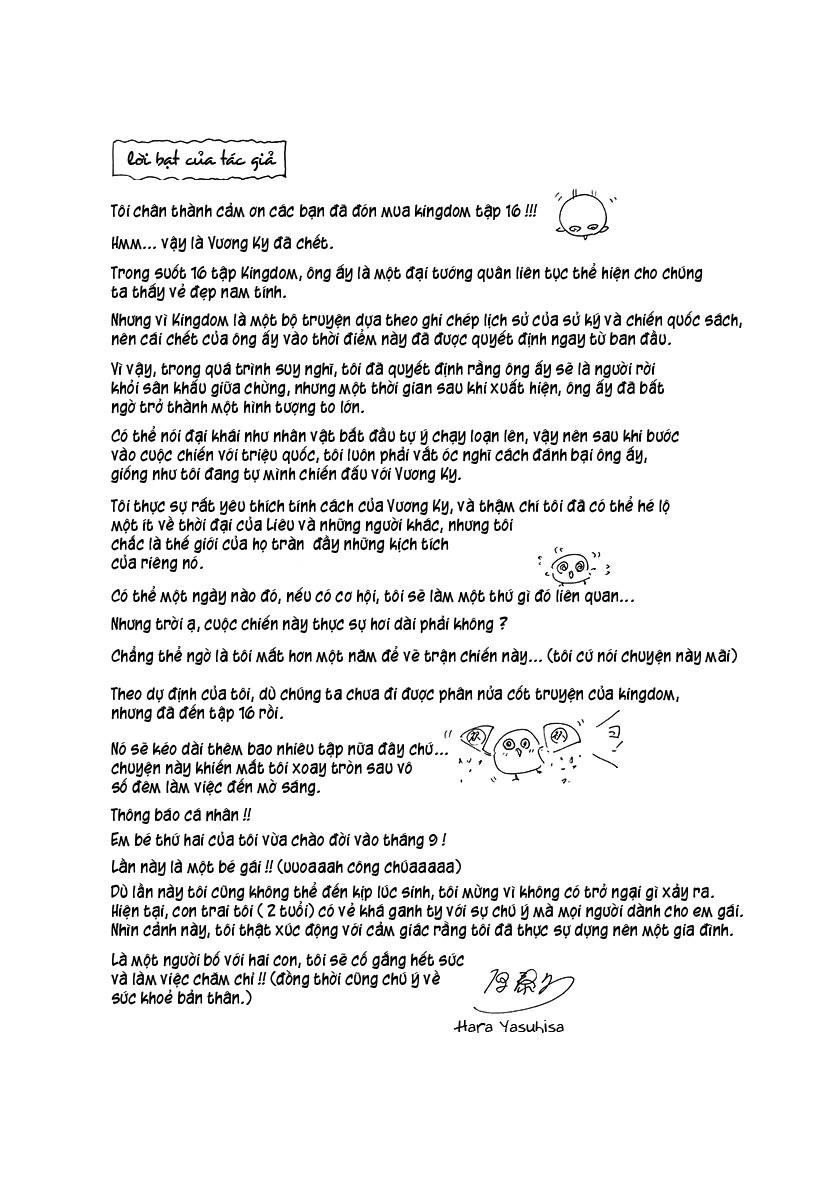 lời bạt của tác giả
Tôi chân thành cảm ơn các bạn đã đón mua kingdom tập 16 !!!
Hmm... vậy là Vương Kỵ đã chết.
Trong suốt 16 tập Kingdom, ông ấy là một đại tướng quân liên tục thể hiện cho chúng
ta thấy vẻ đẹp nam tính.
Nhưng vì Kingdom là một bộ truyện dựa theo ghi chép lịch sử của sử ký và chiến quốc sách,
nên cái chết của ông ấy vào thời điểm này đã được quyết định ngay từ ban đầu.
Vì vậy, trong quá trình suy nghĩ, tôi đã quyết định rằng ông ấy sẽ là người rời
khỏi sân khấu giữa chừng, nhưng một thời gian sau khi xuất hiện, ông ấy đã bất
ngờ trở thành một hình tượng to lớn.
Có thể nói đại khái như nhân vật bắt đầu tự ý chạy loạn lên, vậy nên sau khi bước
vào cuộc chiến với triệu quốc, tôi luôn phải vắt óc nghĩ cách đánh bại ông ấy,
giống như tôi đang tự mình chiến đấu với Vương Kỵ.
Tôi thực sự rất yêu thích tính cách của Vương Kỵ, và thậm chí tôi đã có thể hé lộ
một ít về thời đại của Liêu và những người khác, nhưng tôi
chắc là thế giới của họ tràn đầy những kịch tích
của riêng nó.
Có thể một ngày nào đó, nếu có cơ hội, tôi sẽ làm một thứ gì đó liên quan...
Nhưng trời ạ, cuộc chiến này thực sự hơi dài phải không ?
Chẳng thể ngờ là tôi mất hơn một năm để vẽ trận chiến này... (tôi cứ nói chuyện này mãi)
Theo dự định của tôi, dù chúng ta chưa đi được phân nửa cốt truyện của kingdom,
nhưng đã đến tập 16 rồi.
Nó sẽ kéo dài thêm bao nhiêu tập nữa đây chứ...
chuyện này khiến mắt tôi xoay tròn sau vô
số đêm làm việc đến mờ sáng.
Thông báo cá nhân !!
Em bé thứ hai của tôi vừa chào đời vào tháng 9 !
Lần này là một bé gái !! (uuoaaah công chúaaaaa)
Dù lần này tôi cũng không thể đến kịp lúc sinh, tôi mừng vì không có trở ngại gì xảy ra.
Hiện tại, con trai tôi ( 2 tuổi) có vẻ khá ganh tỵ với sự chú ý mà mọi người dành cho em gái.
Nhìn cảnh này, tôi thật xúc động với cảm giác rằng tôi đã thực sự dựng nên một gia đình.
Là một người bố với hai con, tôi sẽ cố gắng hết sức
và làm việc chăm chỉ !! (đồng thời cũng chú ý về
sức khoẻ bản thân.)
Hara Yasuhisa